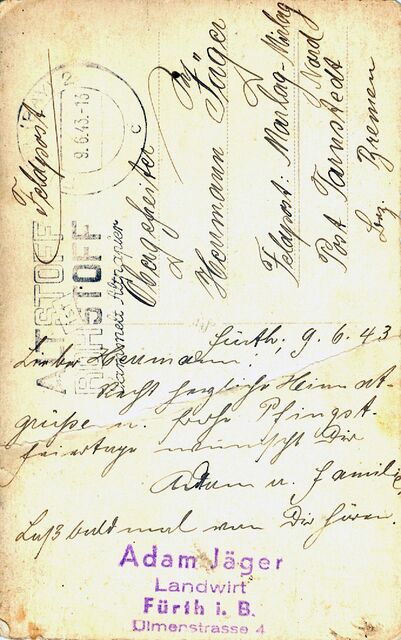 Feldpost
9.6.43.-13
c
ALTSTOFF
ROHSTOFF
sammelt Altpapier
Obergefreiter
Hermann Jäger
Feldpost: Marlag-Milag
Nord
Post Tarnstedt
Bez. Bremen
Fürth, 9.6.43
Lieber Hermann!
Recht herzliche Heimat-
grüße u. frohe Pfingst-
feiertage wünscht Dir
Adam u. Familie
Laß bald mal von Dir hören.
Adam Jäger
Landwirt
Fürth i. B.
Ulmenstrasse 4